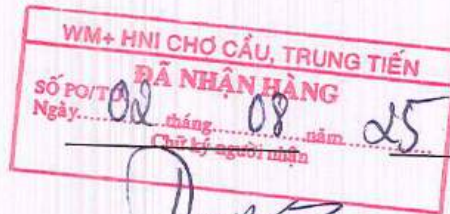 WM+ HNI CHỢ CẦU, TRUNG TIẾN
ĐÃ NHẬN HÀNG
SỐ PO/T
Ngày 02 tháng 08 năm 25
Chữ ký người nhận